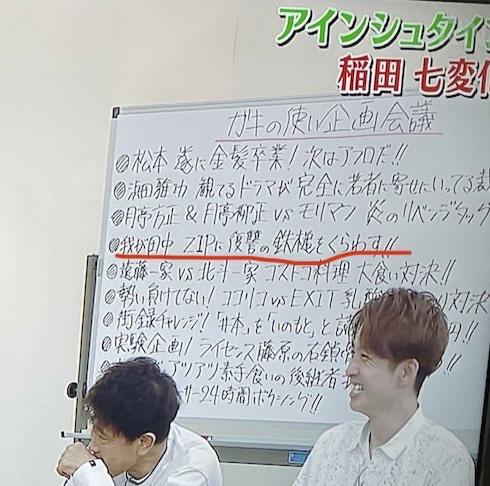 アインシュタイン
稲田 七変化
ガキの使い企画会議
松本 遂に金髪卒業!次はアフロだ!!
浜田雅功 観てるドラマが完全に若者に寄せにいってる
月亭方正&月亭柳正vsモリマン 炎のリベンジタッグ
我が田中 ZIPに復讐の鉄槌をくらわす!!
遠藤一家vs北斗一家 コストコ料理 大食い対決!!
勢い負けてない!ココリコvsEXIT 乳 対決
街録チャレンジ!「井本」を「いのもと」と 円!!
実験企画!ライセンス藤原の右鎖骨
アツアツ素手食いの後継者
24時間ボウシング!!